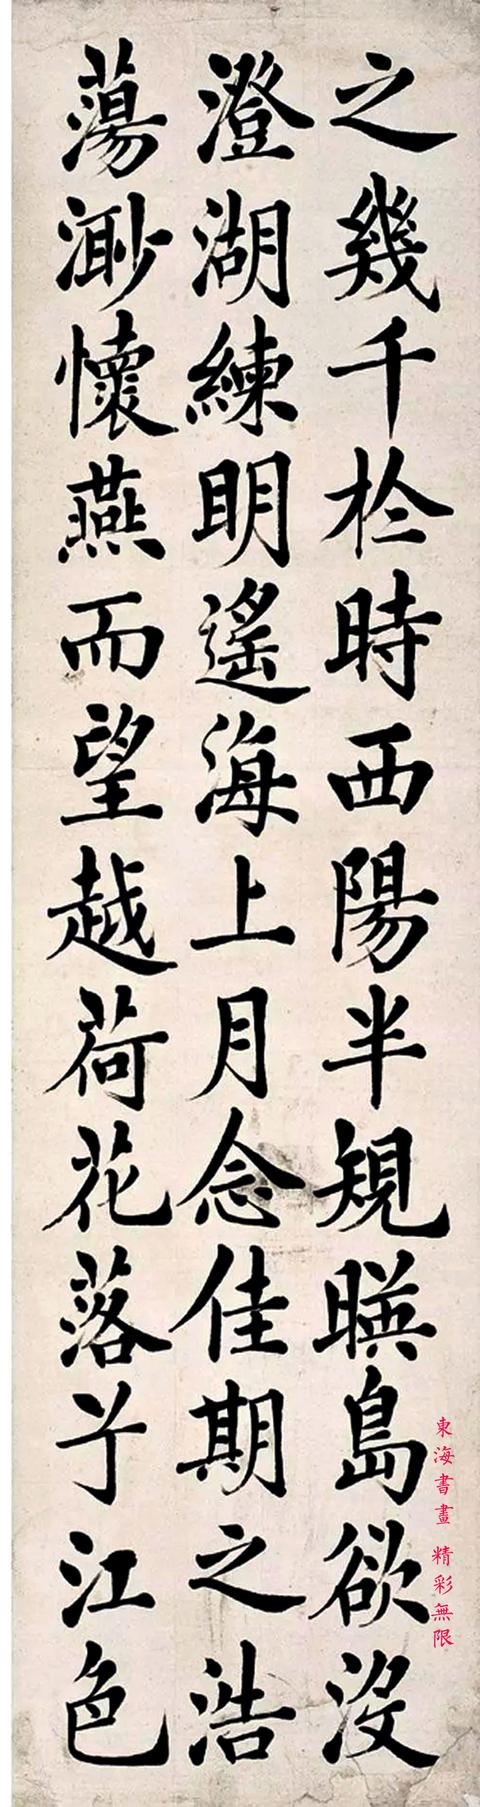 之幾千扵時西陽半規暎島欲沒
澄湖練明遙海上月念佳期之浩
蕩渺懷燕而望越荷花落兮江色
東海書畫 精彩無限